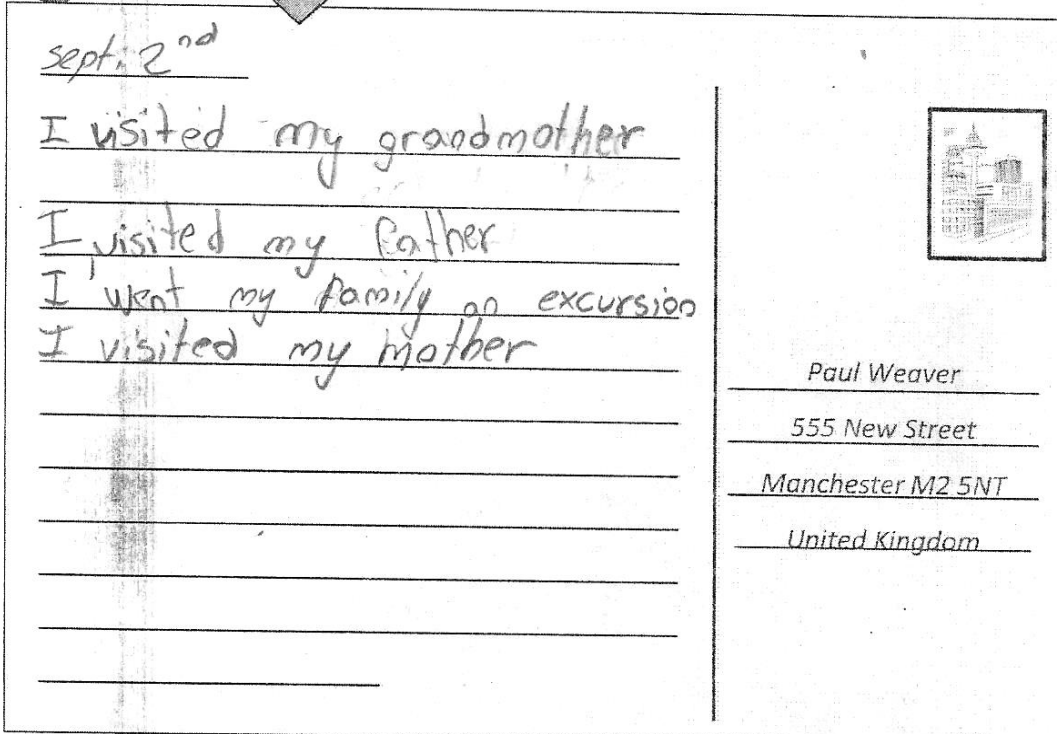 sept. 2nd
I visited my grandmother
I visited my father
I went my family on excursion
I visited my mother
Paul Weaver
555 New Street
Manchester M2 5NT
United Kingdom